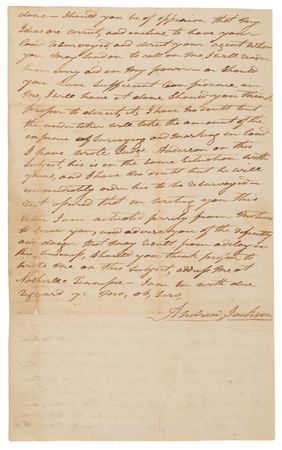 done — Should you be of oppinion that my
Ideas are correct, and incline to have your
land resurveyed, and direct your agent whom
you may send on to call on me, I will render
him every aid in my power — or Should
you have sufficient confidence in
me, I will have it done should you think
proper to direct it, I have no doubt but
the undertaker will take the amount of the
expence of Surveying and marking in land
I have wrote Judge Anderson on this
Subject, his is in the same situation with
yours, and I have no doubt but he will
immediately order his to be resurveyed —
rest assured that in writing you this
letter I am actuated purely from motives
to serve you, and advise you of the
and danger that may result from a delay in
this business, should you think proper to
write me on this subject, address me at
Nashville Tennessee — I am Sir with due
reguard yr mo, ob, serv,
Andrew Jackson